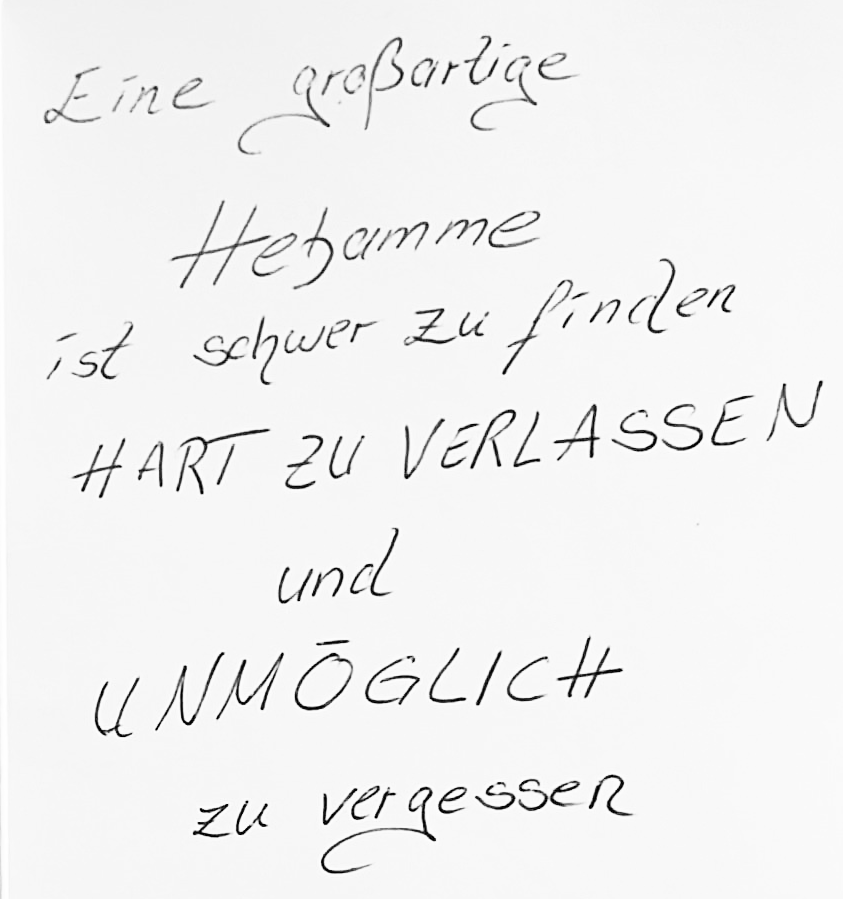 Eine großartige
Hebamme
ist schwer zu finden
HART ZU VERLASSEN
und
UNMÖGLICH
zu vergessen